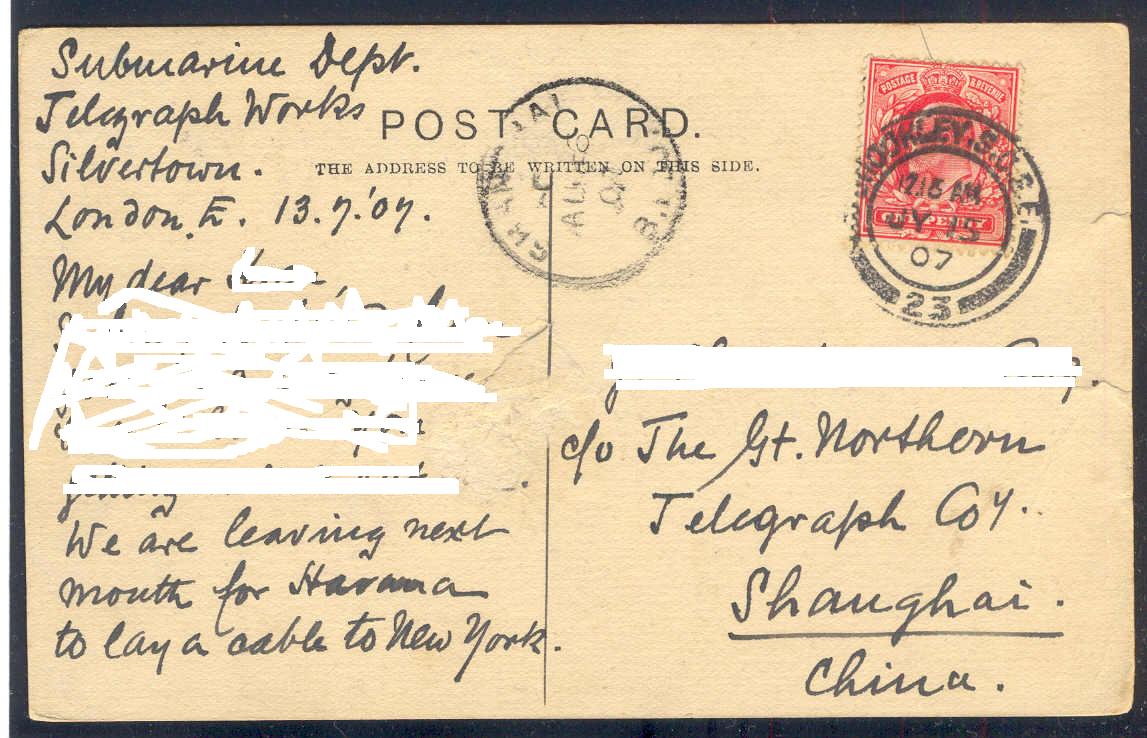 Submarine Dept.
Telegraph Works
Silvertown.
London. E. 13.7.'07.
My dear
We are leaving next
month for Havana
to lay a cable to New York.
POST CARD.
THE ADDRESS TO BE WRITTEN ON THIS SIDE.
POSTAGE & REVENUE
ONE PENNY
7.15 AM
JY 15
07
23
SHANGHAI
AU
07
c/o The Gt. Northern
Telegraph Coy.
Shanghai.
China.